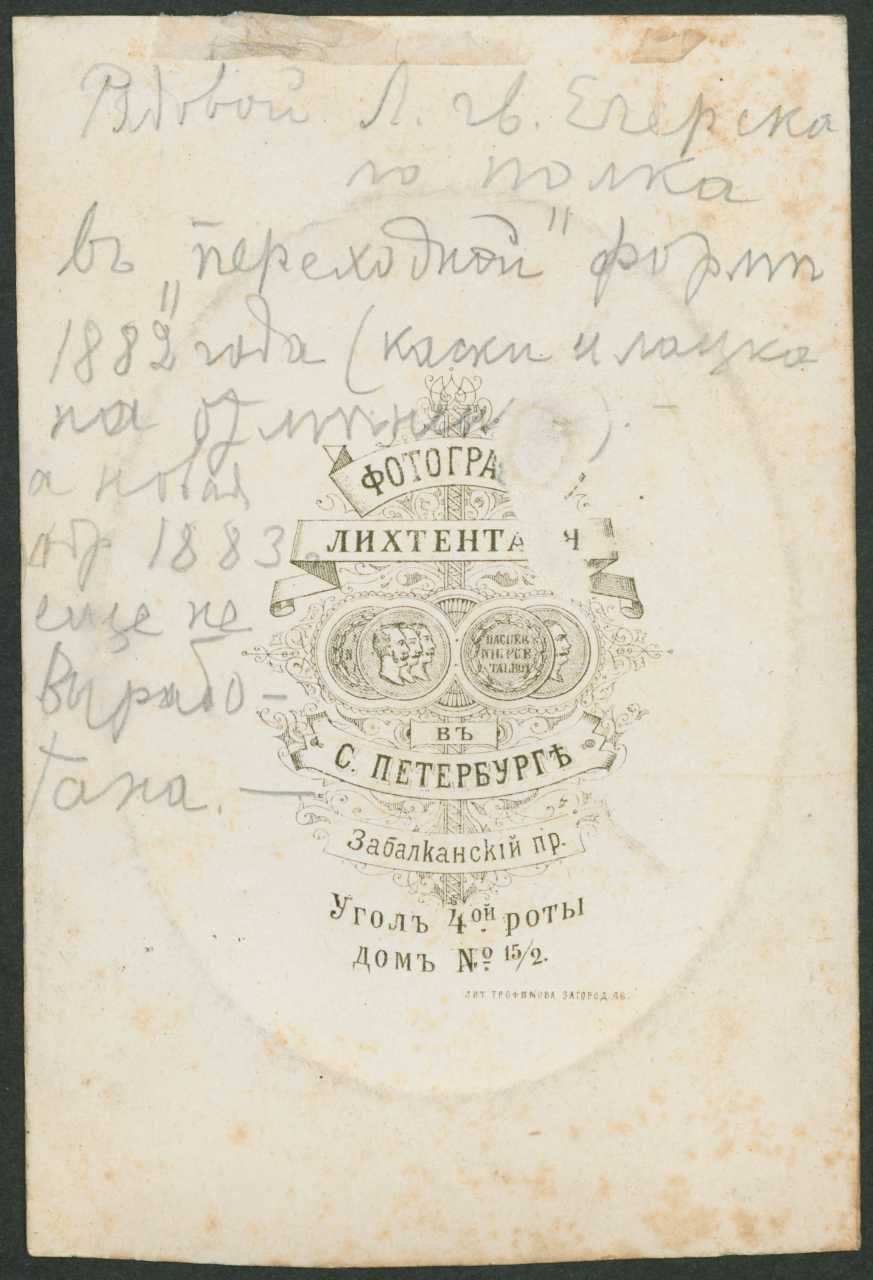 Рядовой Л. гв. Егерска
го полка
въ „переходной" форме
1882 года (каски и лацка
на отмнены).
а новая
обр 1883 г.
еще не
вырабо-
тана. —
ФОТОГРА
ЛИХТЕНТА Я
DAGUER
NIEPCE
TALBOT
ВЪ
С. ПЕТЕРБУРГѢ
Забалканскій пр.
Уголъ 4ой роты
домъ № 15/2.
ЛИТ ТРОФИМОВА ЗАГОРОД.